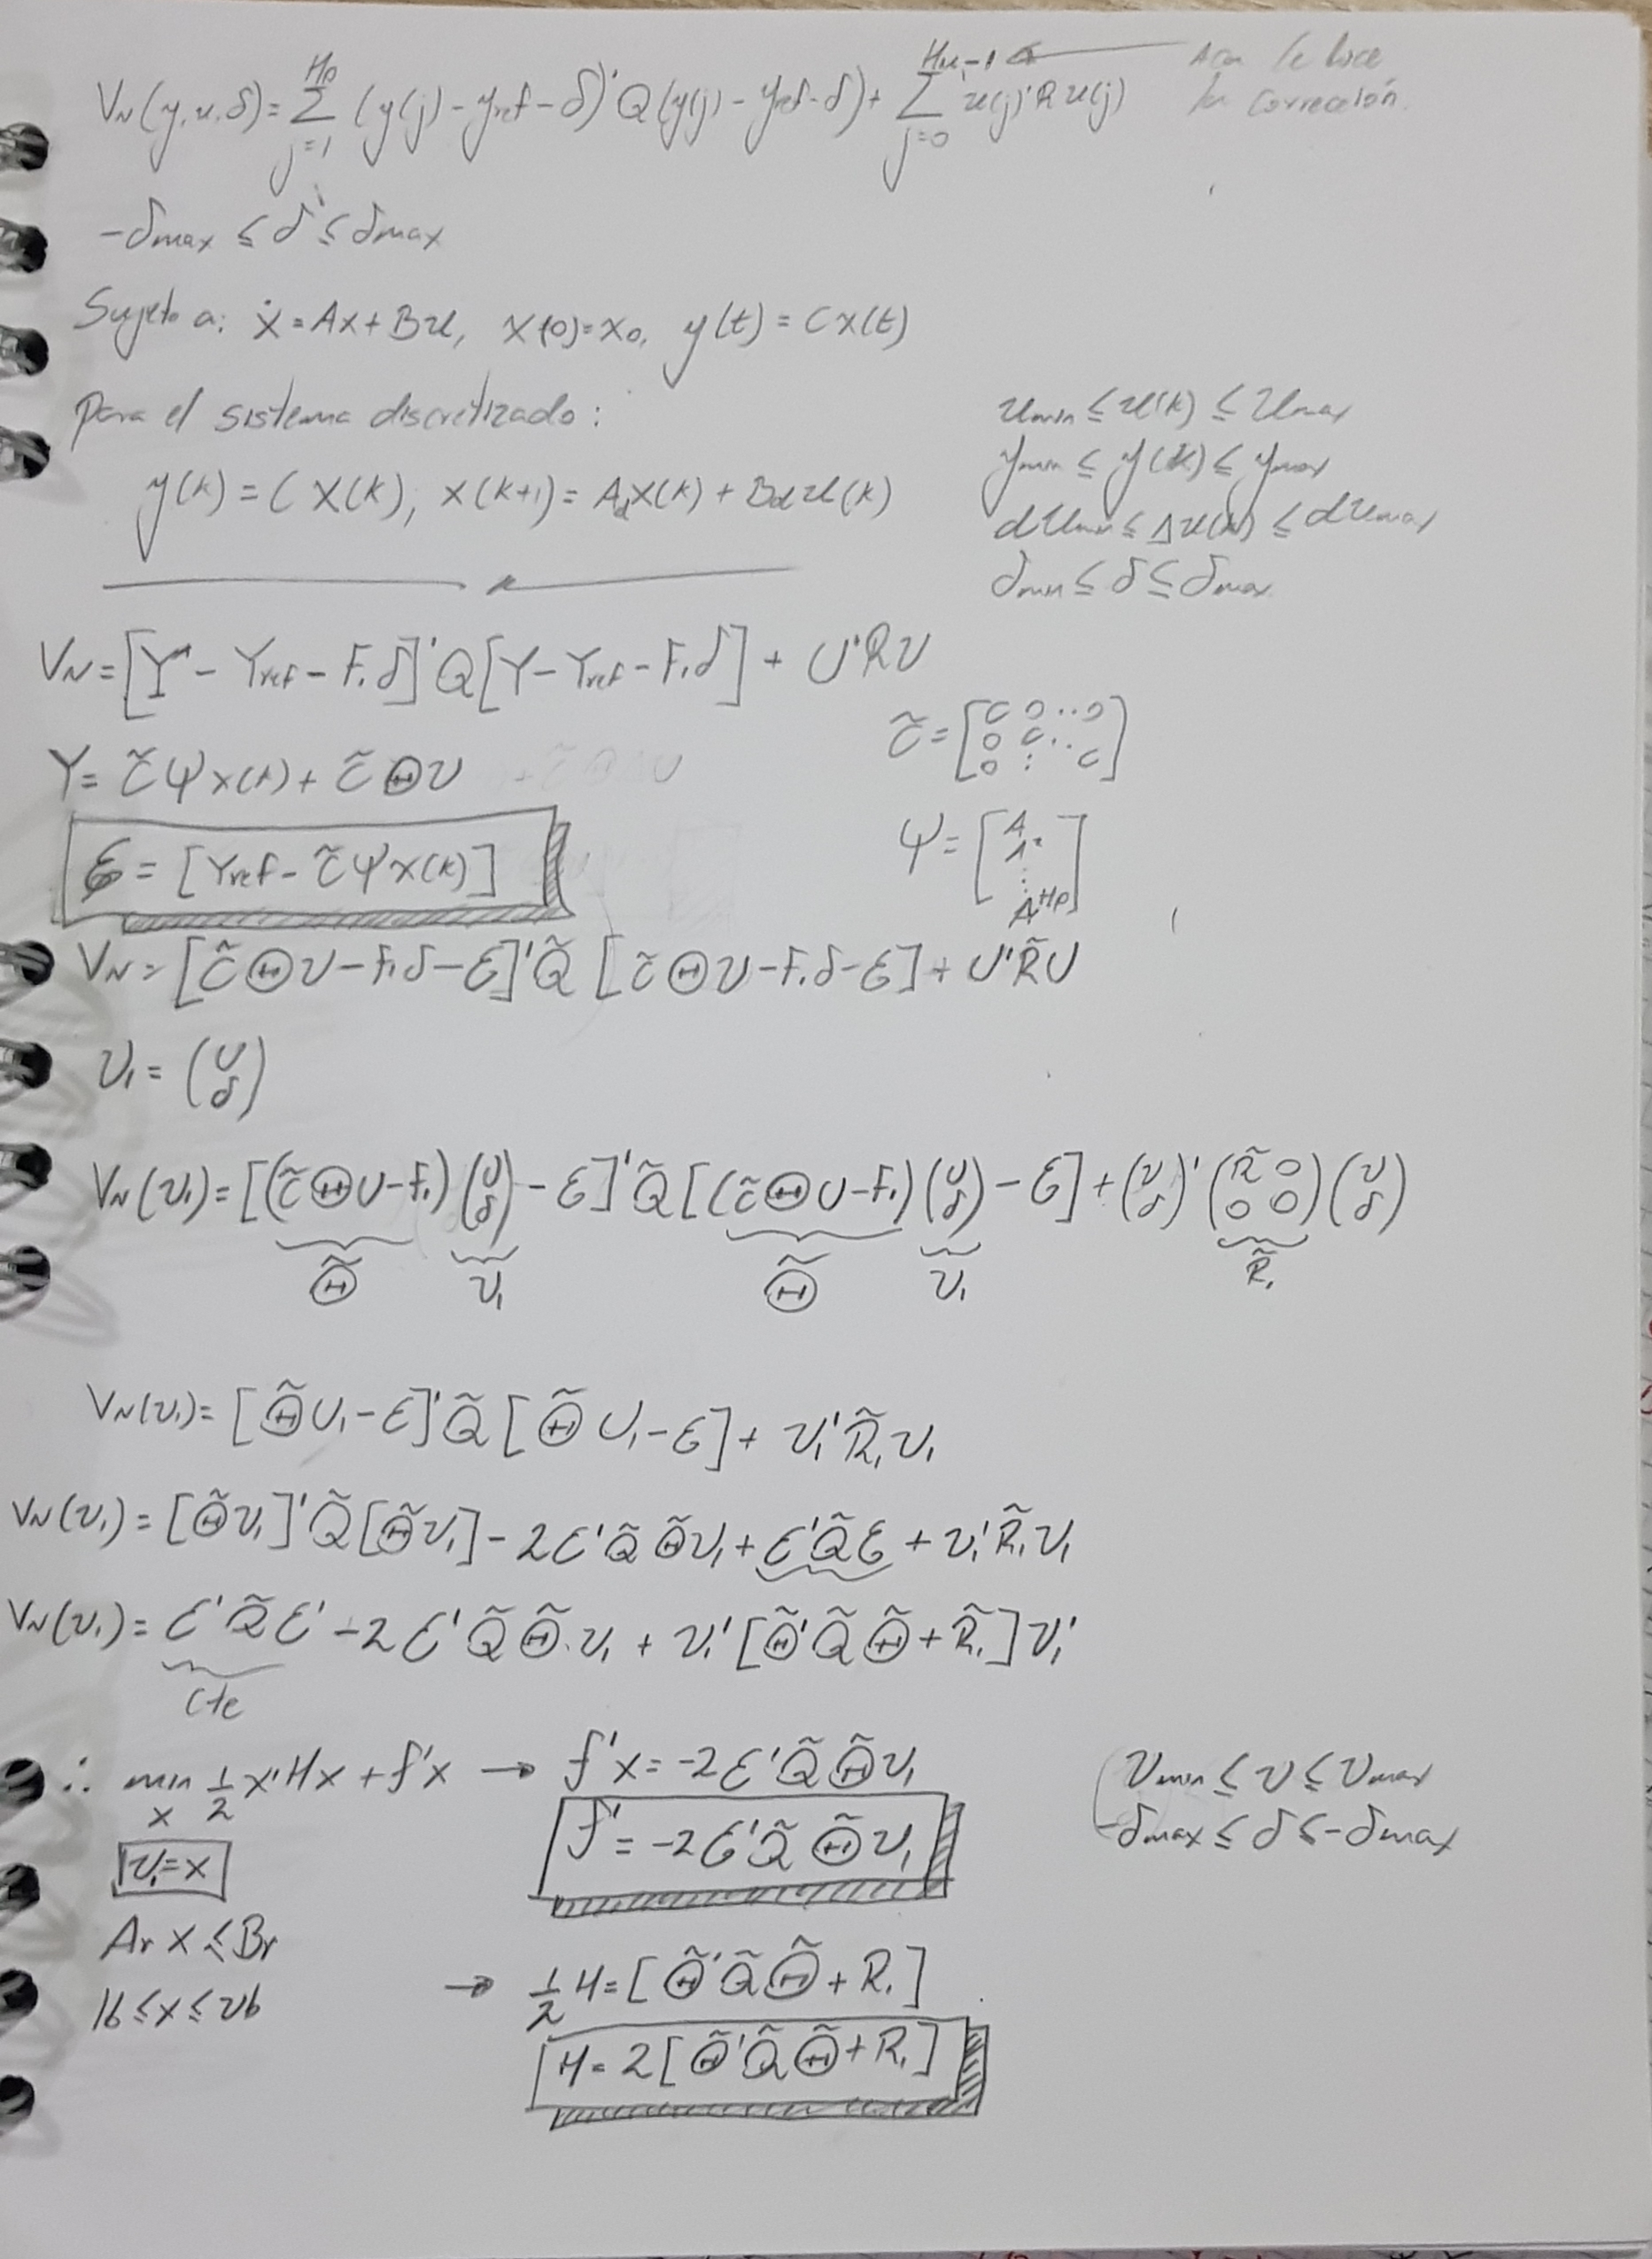 V_N(y,u,δ)= Σ_{j=1}^{Hp} (y(j)-yref-δ)'Q(y(j)-yref-δ)+ Σ_{j=0}^{Hu-1} u(j)'R u(j) ← Acá le hice
la corrección.
-δmax ≤ δ ≤ δmax
Sujeto a: ẋ=Ax+Bu, x(0)=x0, y(t)=Cx(t)
para el sistema discretizado:
umin ≤ u(k) ≤ umax
ymin ≤ y(k) ≤ ymax
y(k)=Cx(k), x(k+1)=Adx(k)+Bdu(k)
dumin ≤ Δu(k) ≤ dumax
δmin ≤ δ ≤ δmax
V_N=[Y-Yref-F₁δ]'Q[Y-Yref-F₁δ]+U'RU
Y=C̃Ψx(k)+C̃ΘU
C̃=[C 0 ..0 0 C .. 0 : C]
Ψ=[A A² ⋮ A^Hp]
Ɛ=[Yref-C̃Ψx(k)]
V_N=[C̃ΘU-F₁δ-Ɛ]'Q̃[C̃ΘU-F₁δ-Ɛ]+U'R̃U
U₁=(U δ)
V_N(U₁)=[(C̃ΘU-F₁)(U δ)-Ɛ]'Q̃[(C̃ΘU-F₁)(U δ)-Ɛ]+(U δ)'(R̃ 0 0 0)(U δ)
Θ̃ U₁ Θ̃ U₁ R̃₁
V_N(U₁)=[Θ̃U₁-Ɛ]'Q̃[Θ̃U₁-Ɛ]+U₁'R̃₁U₁
V_N(U₁)=[Θ̃U₁]'Q̃[Θ̃U₁]-2Ɛ'Q̃Θ̃U₁+Ɛ'Q̃Ɛ+U₁'R̃₁U₁
V_N(U₁)=Ɛ'Q̃Ɛ'-2Ɛ'Q̃Θ̃·U₁+U₁'[Θ̃'Q̃Θ̃+R̃₁]U₁'
Cte
∴ min_x 1/2 x'Hx+f'x → f'x=-2Ɛ'Q̃Θ̃U₁
Umin ≤ U ≤ Umax
-δmax ≤ δ ≤ -δmax
f'=-2Ɛ'Q̃Θ̃U₁
U₁=x
Ar x ≤ Br
lb ≤ x ≤ ub
→ 1/2 H=[Θ̃'Q̃Θ̃+R₁]
H=2[Θ̃'Q̃Θ̃+R₁]